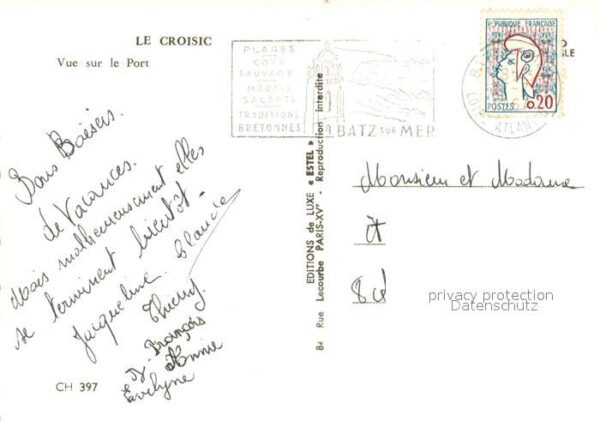 LE CROISIC
Vue sur le Port
PLAGES
COTE
SAUVAGE
MARAIS
SALANTS
TRADITIONS
BRETONNES
BATZ SUR MER
REPUBLIQUE FRANÇAISE
POSTES 0.20
Bons Baisers
de Vacances.
Mais malheureusement elles
se terminent bientôt.
Jacqueline Claude
Thierry
François
Annie
Evelyne
CH 397
EDITIONS de LUXE « ESTEL »
84 Rue Lecourbe PARIS-XVe - Reproduction interdite
Monsieur et Madame
privacy protection
Datenschutz